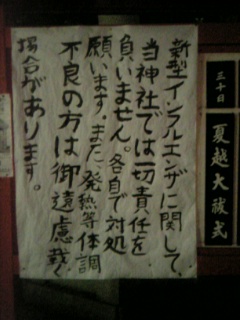 新型インフルエンザに関して、
当神社では一切責任を
負いません。各自で対処
願います。また、発熱等体調
不良の方は御遠慮戴く
場合があります。
三十日
夏越大祓式